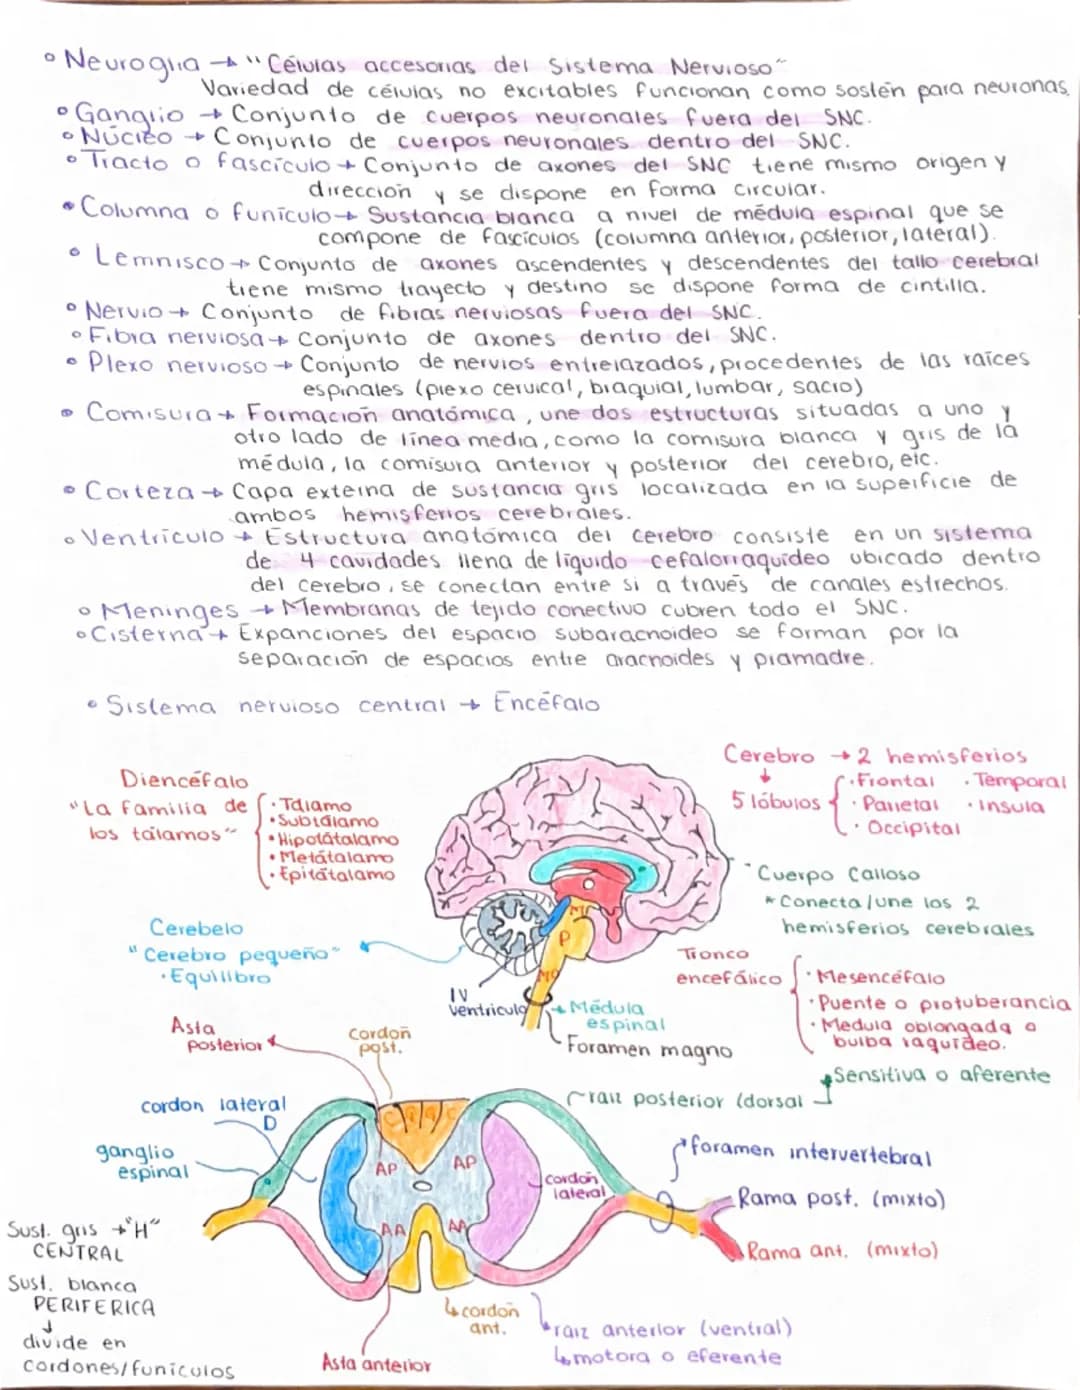 Neuroglia → "Células accesorias del Sistema Nervioso"
Variedad de células no excitables funcionan como sostén para neuronas
Ganglio → Conjunto de cuerpos neuronales fuera del SNC.
Núcleo → Conjunto de cuerpos neuronales dentro del SNC.
Tracto o fascículo → Conjunto de axones del SNC tiene mismo origen y
dirección y se dispone en forma circular.
Columna o funículo → Sustancia blanca a nivel de médula espinal que se
compone de fascículos (columna anterior, posterior, lateral).
Lemnisco → Conjunto de axones ascendentes y descendentes del tallo cerebral
tiene mismo trayecto y destino se dispone forma de cintilla.
Nervio → Conjunto de fibras nerviosas fuera del SNC.
Fibra nerviosa → Conjunto de axones dentro del SNC.
Plexo nervioso → Conjunto de nervios entrelazados, procedentes de las raíces
espinales (plexo cervical, braquial, lumbar, sacro)
Comisura → Formación anatómica, une dos estructuras situadas a uno y
otro lado de línea media, como la comisura blanca y gris de la
médula, la comisura anterior y posterior del cerebro, etc.
Corteza → Capa externa de sustancia gris localizada en la superficie de
ambos hemisferios cerebrales.
Ventrículo → Estructura anatómica del cerebro consiste en un sistema
de 4 cavidades llena de líquido cefalorraquídeo ubicado dentro
del cerebro, se conectan entre si a través de canales estrechos.
Meninges → Membranas de tejido conectivo cubren todo el SNC.
Cisterna → Expanciones del espacio subaracnoideo se forman por la
separación de espacios entre aracnoides y piamadre.
Sistema nervioso central → Encéfalo
Cerebro → 2 hemisferios
5 lóbulos
· Frontal · Temporal
· Parietal · Insula
· Occipital
Diencéfalo
"La familia de
los tálamos"
· Tálamo
· Subtálamo
· Hipotátalamo
· Metátalamo
· Epitátalamo
Cuerpo Calloso
* Conecta/une los 2
hemisferios cerebrales
Cerebelo
"Cerebro pequeño"
· Equilibro
M
P
MO
Tronco
encefálico
· Mesencéfalo
· Puente o protuberancia
· Medula oblongada o
bulba raquídeo.
IV
Ventriculo
Médula
espinal
Foramen magno
Asta
posterior
Cordón
post.
Sensitiva o aferente
raíz posterior (dorsal
cordon lateral
D
ganglio
espinal
C G G C
AP
AP
AA
AA
cordón
lateral
foramen intervertebral
Rama post. (mixto)
Rama ant. (mixto)
Sust. gris → "H"
CENTRAL
Sust. blanca
PERIFERICA
↓
divide en
cordones/funículos
cordón
ant.
raíz anterior (ventral)
motora o eferente
Asta anterior